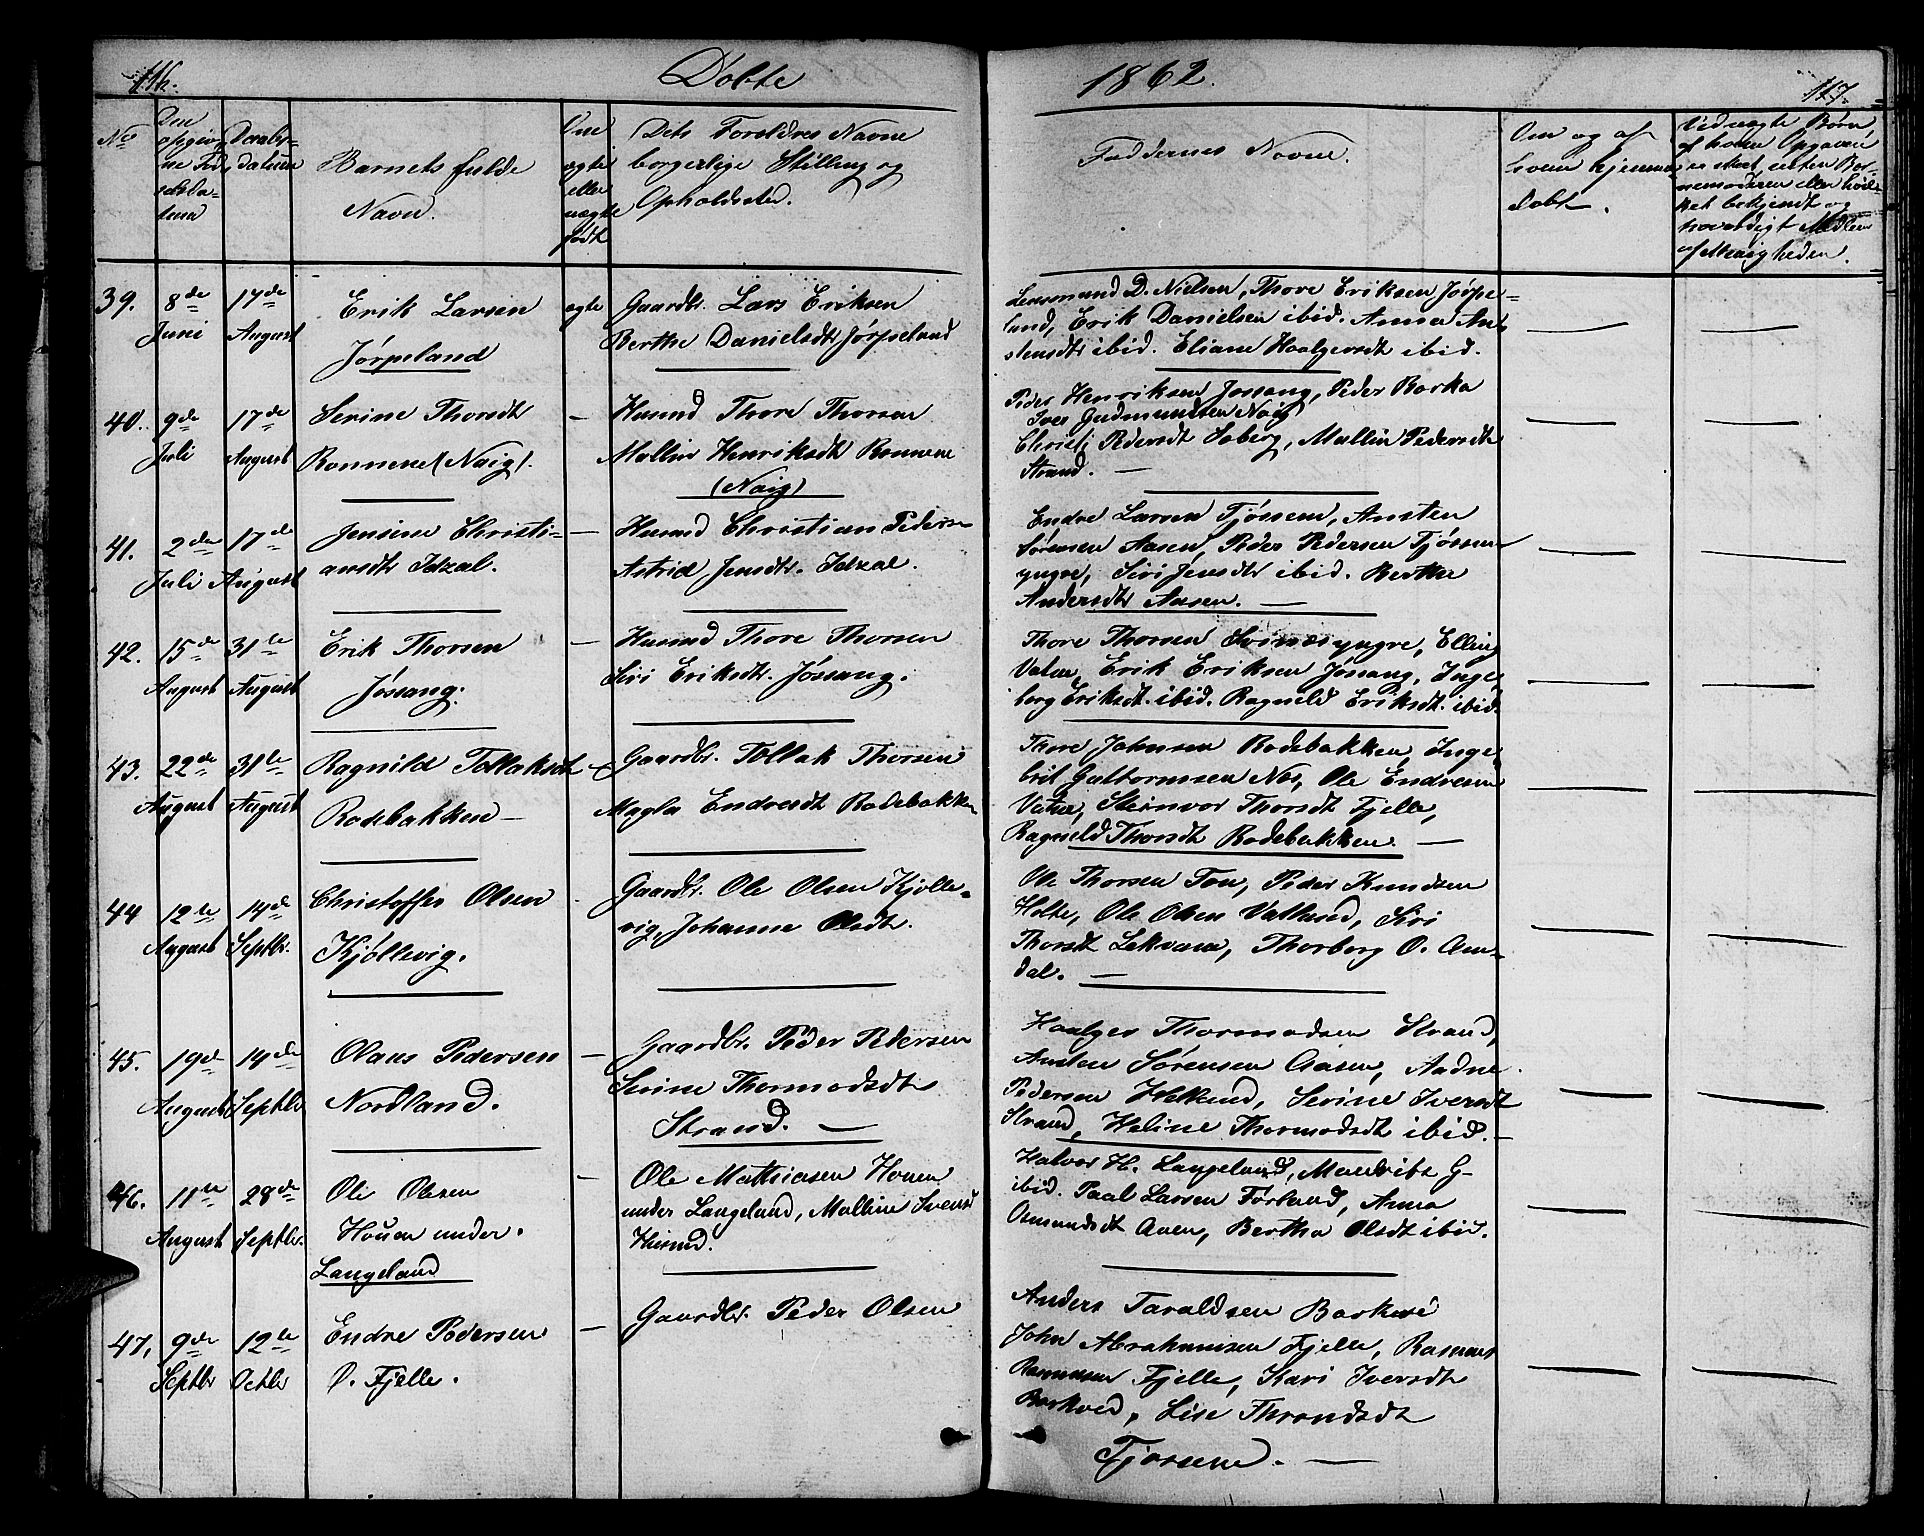 116.
Døbte
1862.
117.
No
Den
opgiv-
ne Fød-
selsda-
tum
Daabs-
datum
Barnets fulde
Navn.
Om
ægte
eller
uægte
født
Dets Forældres Navne
borgerlige Stilling og
Opholdssted.
Faddernes Navne.
Om og af
hvem hjemme-
døbt.
Ved uægte Børn
af hvem Opgaven
er skeet uden Bar-
nemoderen eller hvil-
ket bekjendt og
troværdigt Medlem
af Menigheden.
39.
8de
Juni
17de
August
Erik Larsen
Jørpeland
ægte
Gaardbr. Lars Eriksen
Berthe Danielsdtr Jørpeland
Lensmand D. Nielsen, Thore Eriksen Jørpe-
land, Erik Danielsen ibid. Anna An-
stensdtr ibid. Eliane Haalgersdt ibid.
40.
9de
Juli
17de
August
Serine Thorsdt
Rannene (Naig).
—
Husmd Thore Thorsen
Mallin Henriksdt Rannene
(Naig)
Peder Henriksen Jøssang, Peder Barka
Iver Gudmundsen Naig
Christi Pedersdt Soberg, Mallin Pedersdt
Strand. —
41.
2den
Juli
17de
August
Jensine Christi-
ansdtr Idzal.
—
Husmd Christian Pedersen
Astrid Jensdtr. Idzal.
Endre Larsen Tjøssem, Austen
Sørensen Aasen, Peder Pedersen Tjøssem
yngre, Siri Jensdtr ibid. Berthe
Andersdtr Aasen. —
42.
15de
August
31te
August
Erik Thorsen
Jøssang.
—
Husmd Thore Thorsen
Siri Eriksdtr. Jøssang.
Thore Thorsen Svines yngre, Elling
Vatne, Erik Eriksen Jøssang, Inge-
borg Eriksdt. ibid. Ragneld Eriksdt. ibid.
43.
22de
August
31te
August
Ragnild Tollaksdt
Rødebakken —
—
Gaardbr. Tollak Thorsen
Magla Endresdt Rødebakken
Thore Johnsen Rødebakken, Inge-
bret Guttormsen Nes, Ole Endresen
Vatne, Steinvor Thorsdt Fjelle,
Ragneld Thorsdt Rødebakken. —
44
12te
August
14de
Septbr.
Christoffer Olsen
Kjøllevig.
Gaardbr. Ole Olsen Kjølle-
vig, Johanne Olsdt.
Ole Thorsen Tou, Peder Knudsen
Holte, Ole Olsen Vatland, Siri
Thorsdt Lekvam, Thorborg O. Am-
dal. —
45.
19de
August
14de
Septbr
Olaus Pedersen
Nordland.
—
Gaardbr. Peder Pedersen
Serine Thormodsdtr
Strand. —
Haalger Thormodsen Strand,
Austen Sørensen Aasen, Aadne
Pedersen Heklund, Serine Iversdt
Strand, Heline Thormodsdt ibid. —
46.
11te
August
28de
Septbr.
Ole Olsen
Houen under.
Langeland
—
Ole Mathiasen Houen
under Langeland, Malline Svensd
Husmd.
Halvor H. Langeland, Mauribs G-
ibid. Paal Larsen Førland, Anna
Osmundsdt Aven, Bertha Olsdt ibid.
47.
9de
Septbr
12te
Octbr
Endre Pedersen
Ø. Fjelle.
—
Gaardbr. Peder Olsen
Anders Taraldsen Barkved
John Abrahamsen Fjelle, Rasmus
Rasmussen Fjelle, Kari Iversdtr
Barkved, Lise Throndsdt
Tjøssem. —